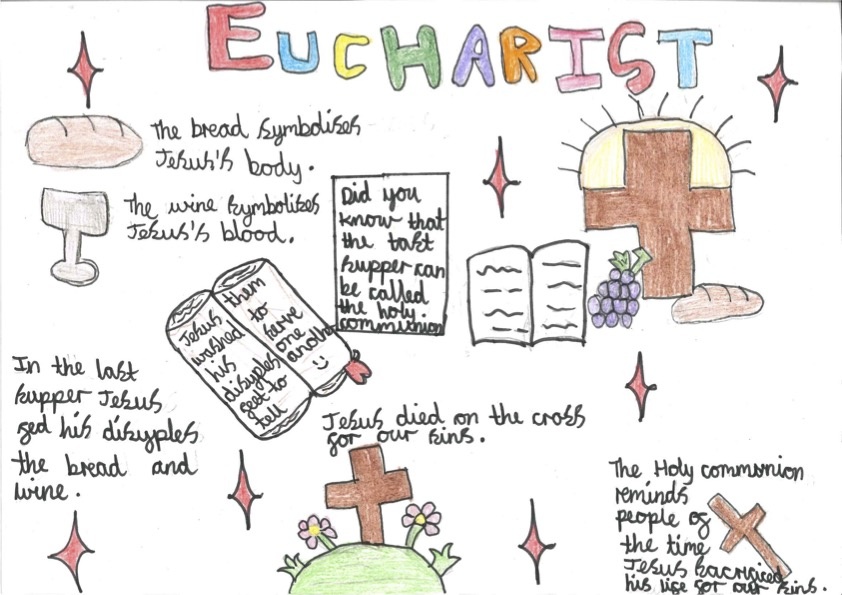 EUCHARIST
The bread symbolises
Jesus's body.
The wine symbolises
Jesus's blood.
Did you
know that
the last
supper can
be called
the holy.
communion
Jesus
washed
his
disyples
feet to
tell
them
to
serve
one
another
In the last
supper Jesus
fed his disyples
the bread and
wine.
Jesus died on the cross
for our sins.
The Holy communion
reminds
people of
the time
Jesus sacrificed
his life for our sins.